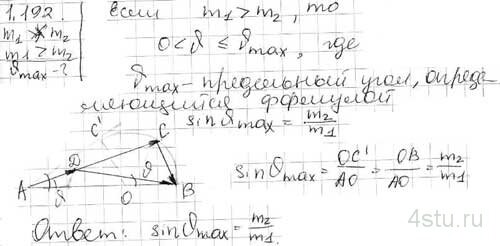 1.192.
m₁ > m₂
m₁ > m₂
ϑmax - ?
Если m₁ > m₂, то
0 < ϑ ≤ ϑmax, где
ϑmax - предельный угол, опреде
ляющийся формулой
sinϑmax = m₂/m₁
C' C D ϑ ϑ̃ A O B
sinϑmax = OC'/AO = OB/AO = m₂/m₁
Ответ: sinϑmax = m₂/m₁.
4stu.ru